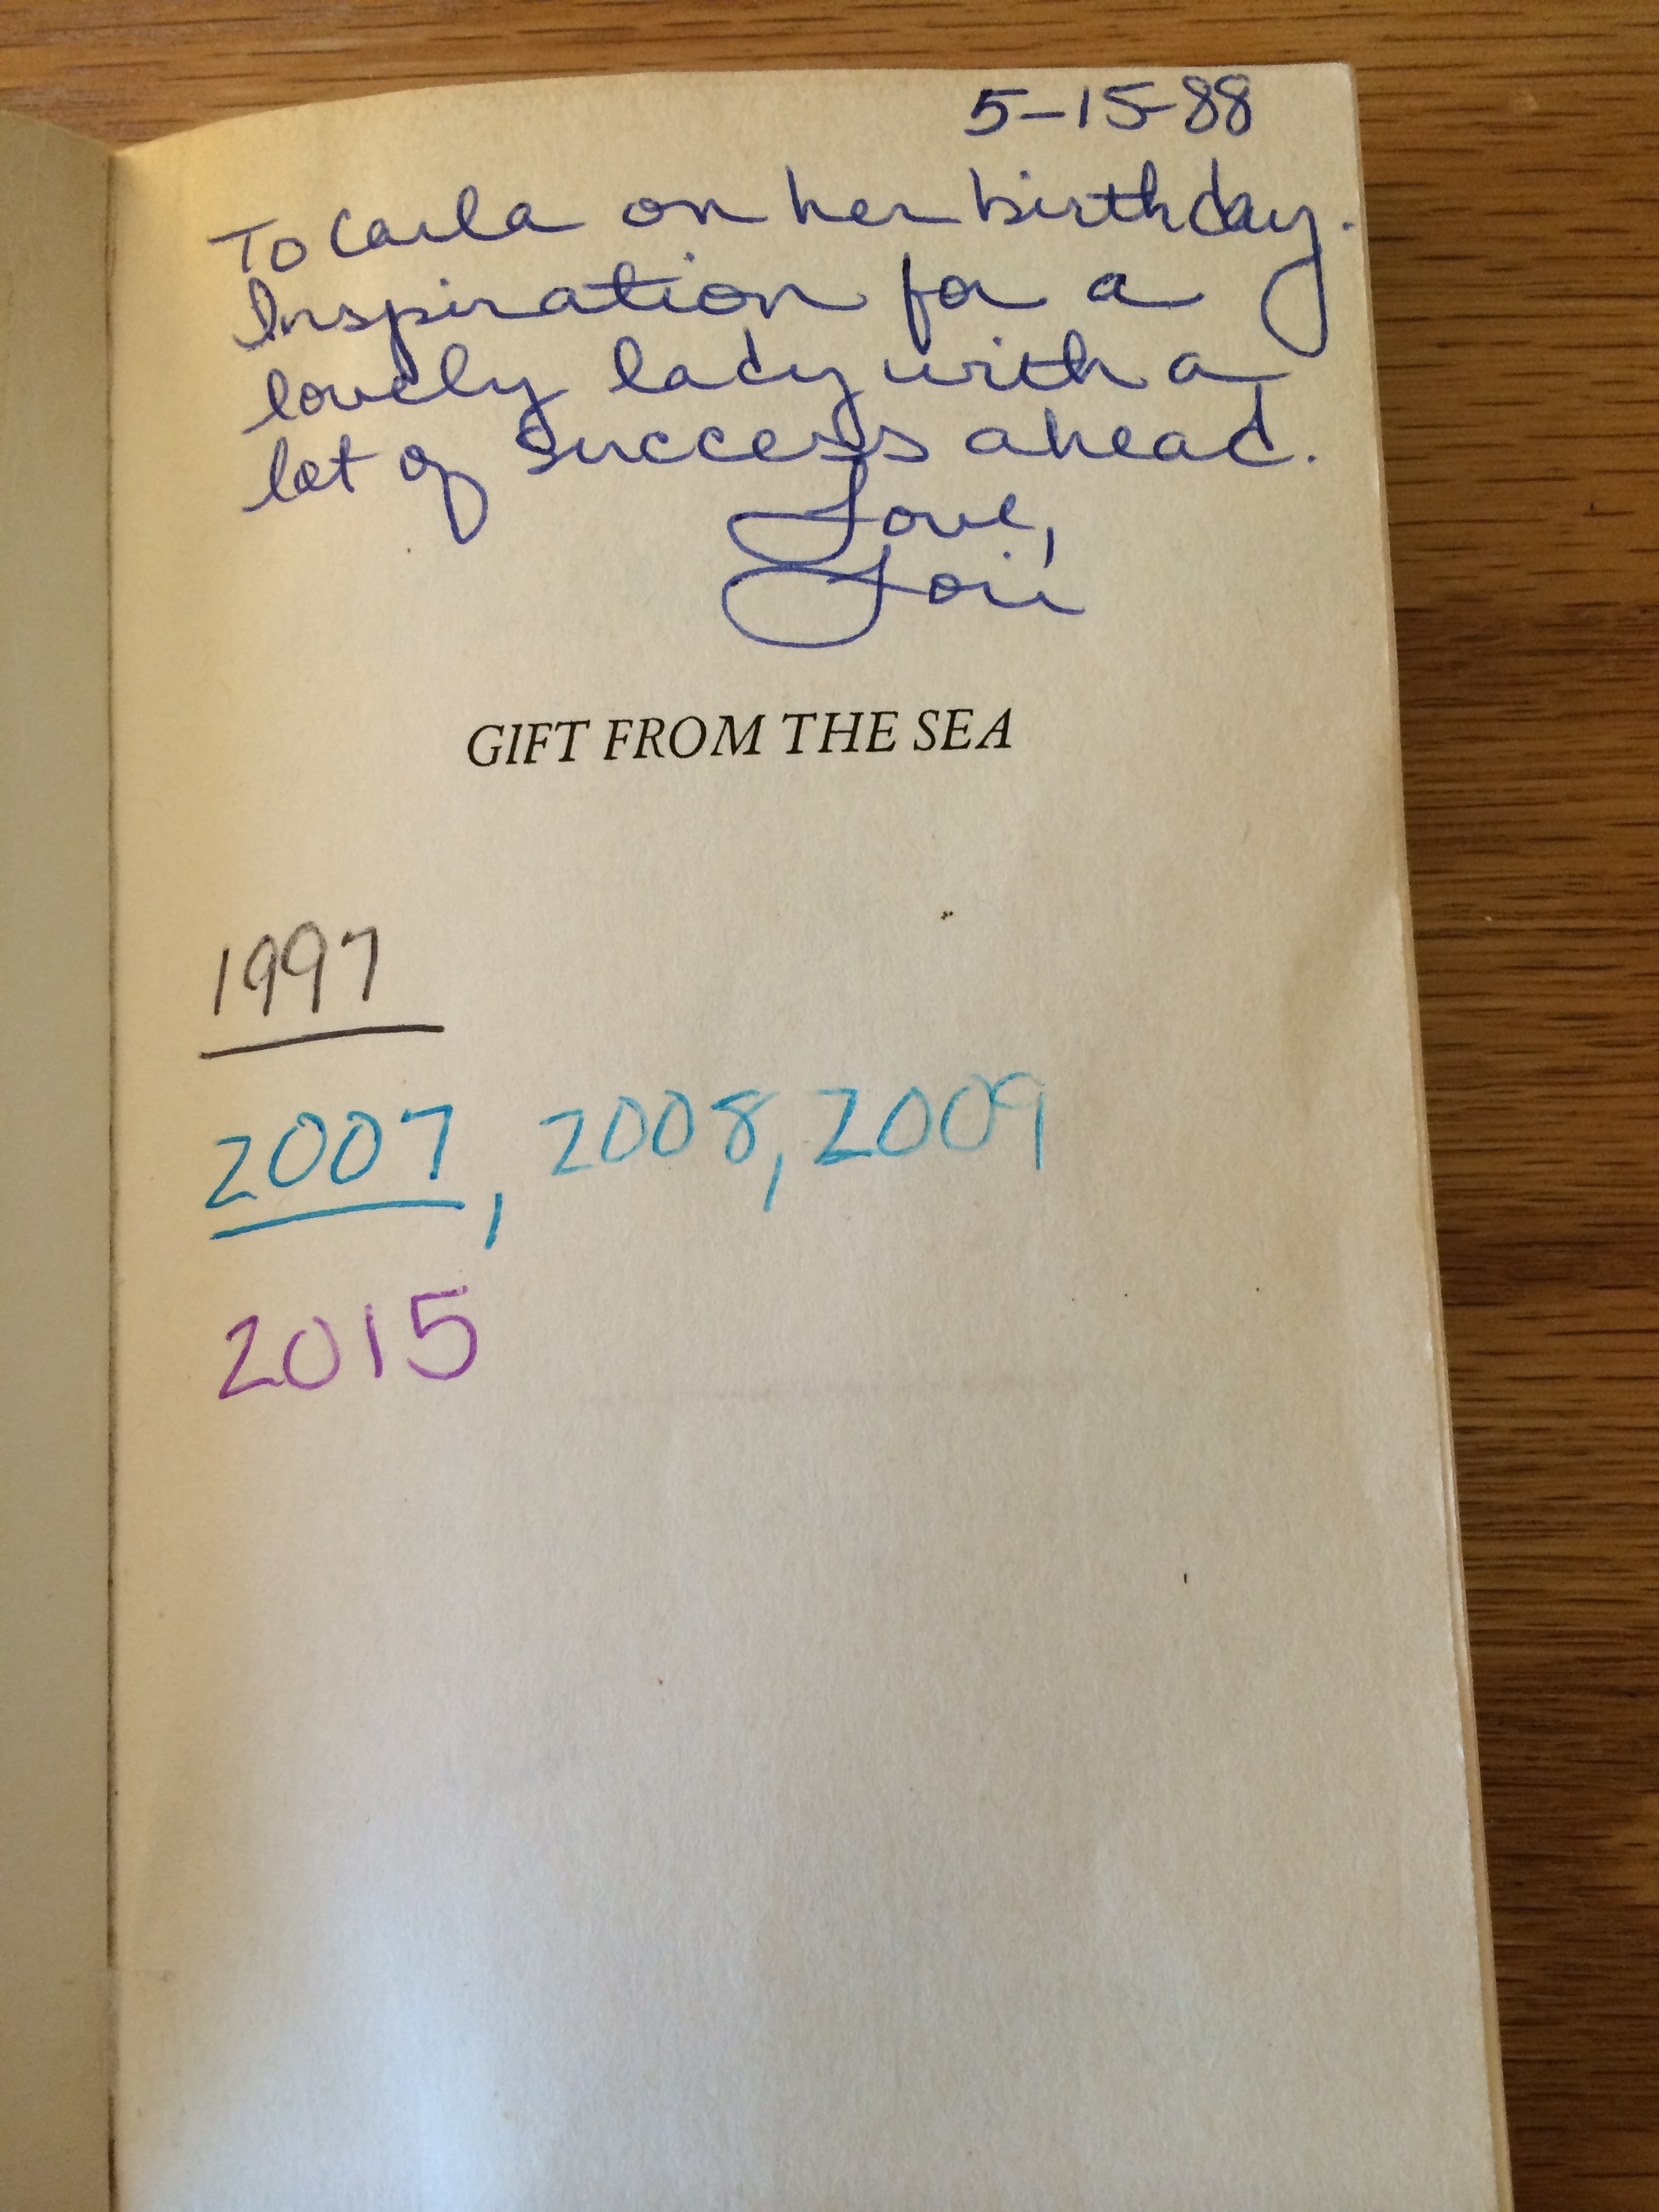 5-15-88
To Carla on her birthday.
Inspiration for a
lovely lady with a
lot of success ahead.
Love,
Lori
GIFT FROM THE SEA
1997
2007, 2008, 2009
2015